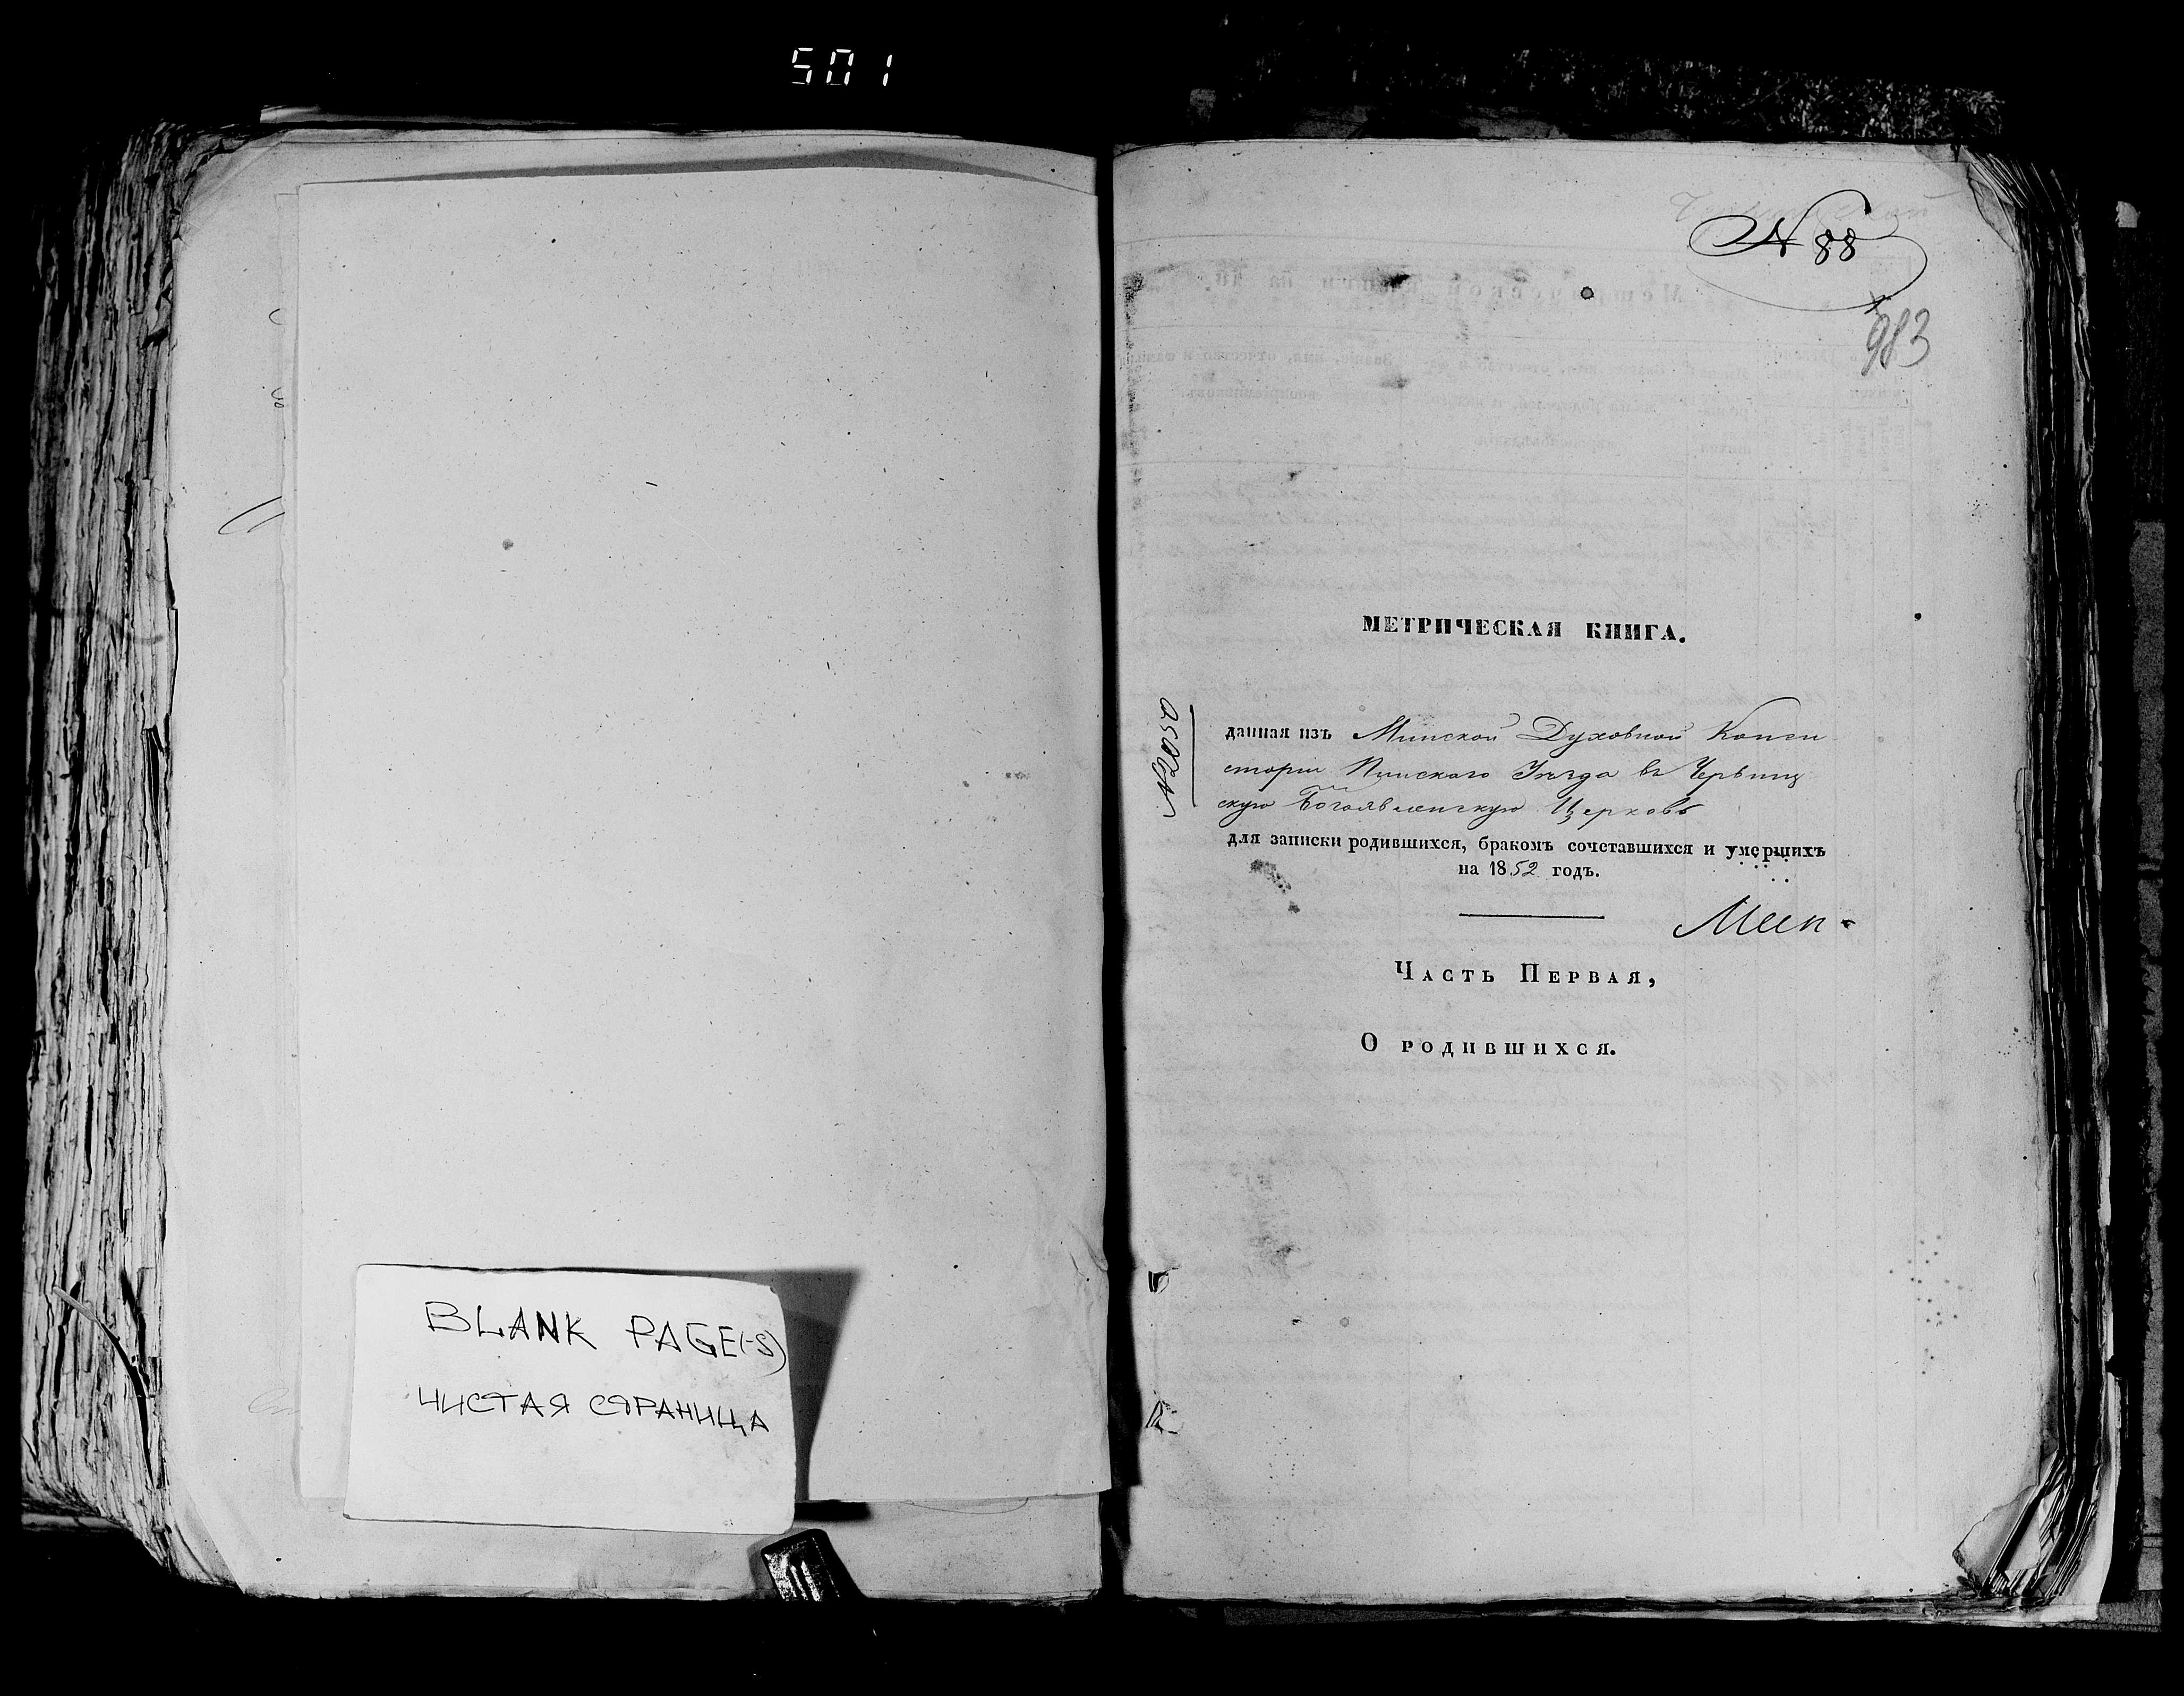 501
BLANK PAGE(-S)
ЧИСТАЯ СТРАНИЦА
N 88
983
МЕТРИЧЕСКАЯ КНИГА.
данная изъ Минской Духовной Конси
сторіи Пинскаго Уѣзда въ
скую Богоявленскую Церковь
для записки родившихся, бракомъ сочетавшихся и умершихъ
на 1852 годъ.
Часть Первая,
О родившихся.